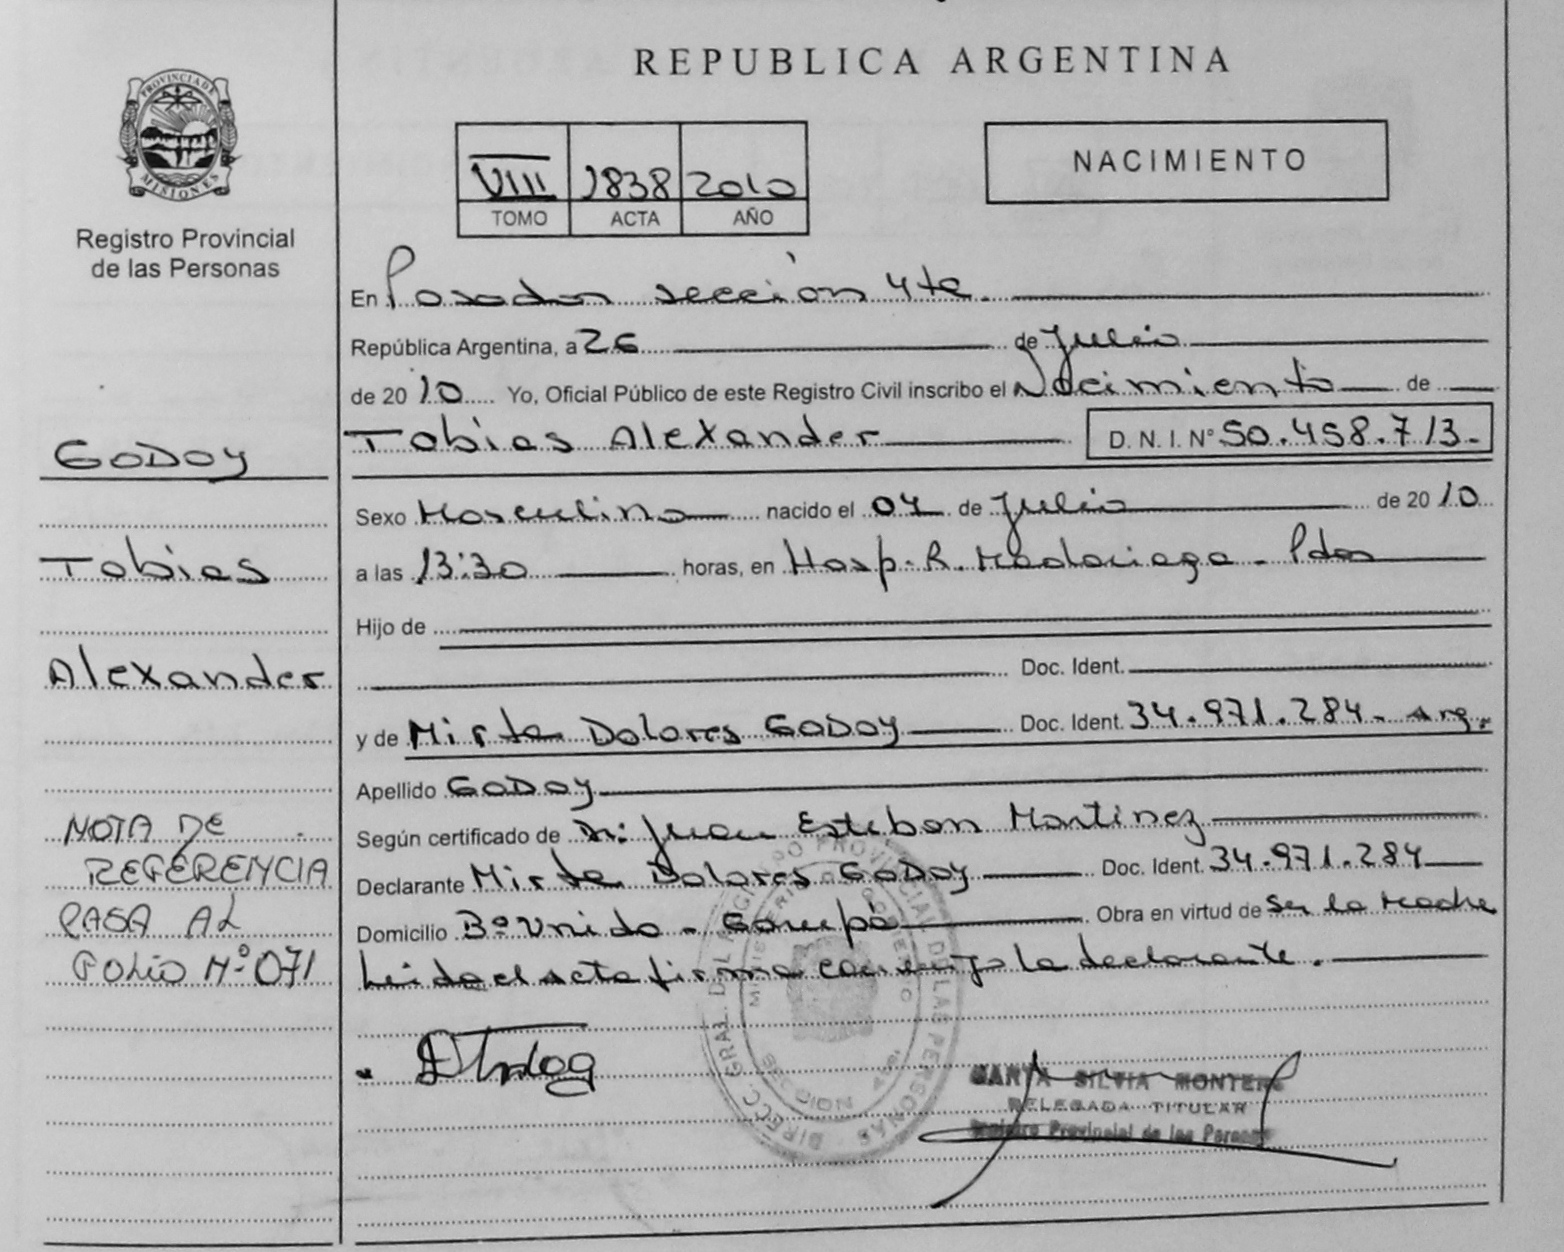 REPUBLICA ARGENTINA
PROVINCIA DE MISIONES
Registro Provincial
de las Personas
VIII 1838 2010
TOMO ACTA AÑO
NACIMIENTO
En Posadas sección 4ta.
República Argentina, a 26 de Julio
de 2010 Yo, Oficial Público de este Registro Civil inscribo el Nacimiento de
Tobias Alexander D. N. I. Nº 50.458.713.-
GODOY
Tobias
Alexander
Sexo Masculino nacido el 04 de Julio de 2010
a las 13:30 horas, en Hosp. R. Madariaga - Pdas
Hijo de
Doc. Ident.
y de Mirta Dolores GODOY Doc. Ident. 34.971.284- Arg.
Apellido GODOY
Según certificado de Dr: Juan Esteban Martinez
Declarante Mirta Dolores GODOY Doc. Ident. 34.971.284
Domicilio Bº Unido - Garupá Obra en virtud de Ser la Madre
Leida el acta firma conmigo la declarante.
NOTA DE
REFERENCIA
PASA AL
FOLIO Nº 071
SILVIA MONTERO
DELEGADA TITULAR
Registro Provincial de las Personas